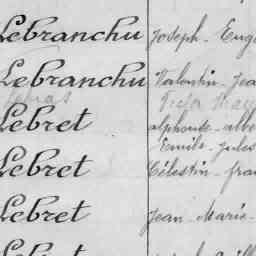 Lebranchu Joseph - Eugè
Lebranchu Valentin - Jea
Lebras
Lebret Alphonse - Albe
Emile - Jules
Lebret Célestin - Fra
Lebret Jean - Marie -